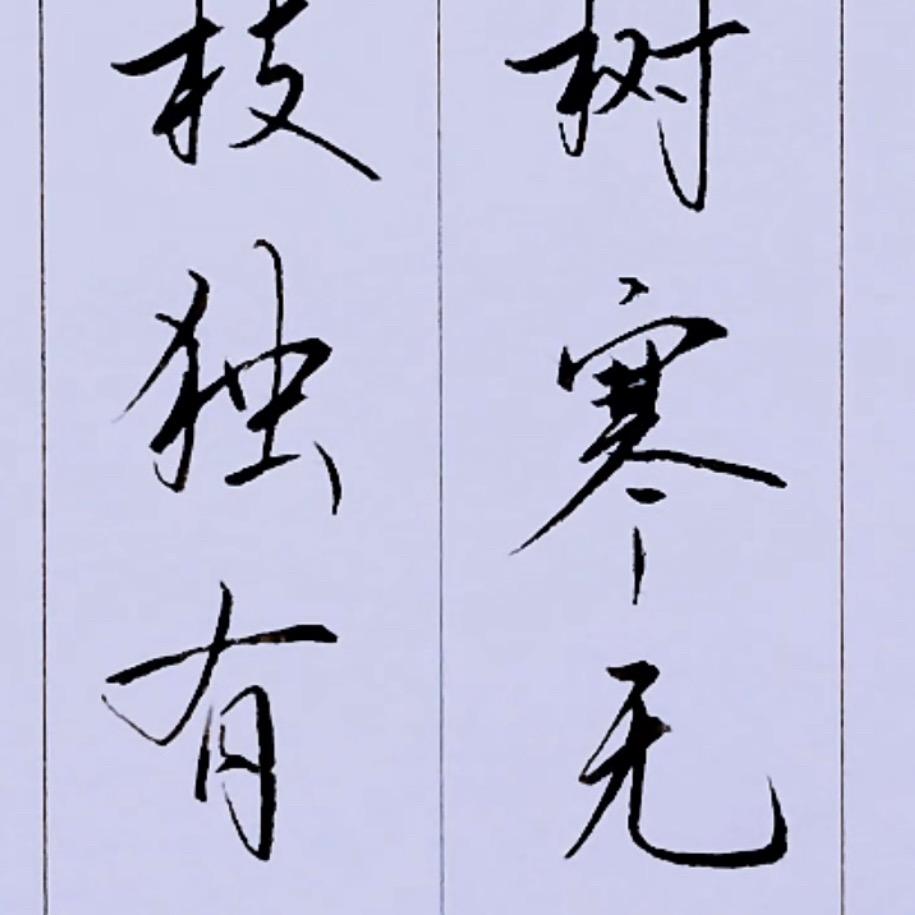 树寒无
枝独有